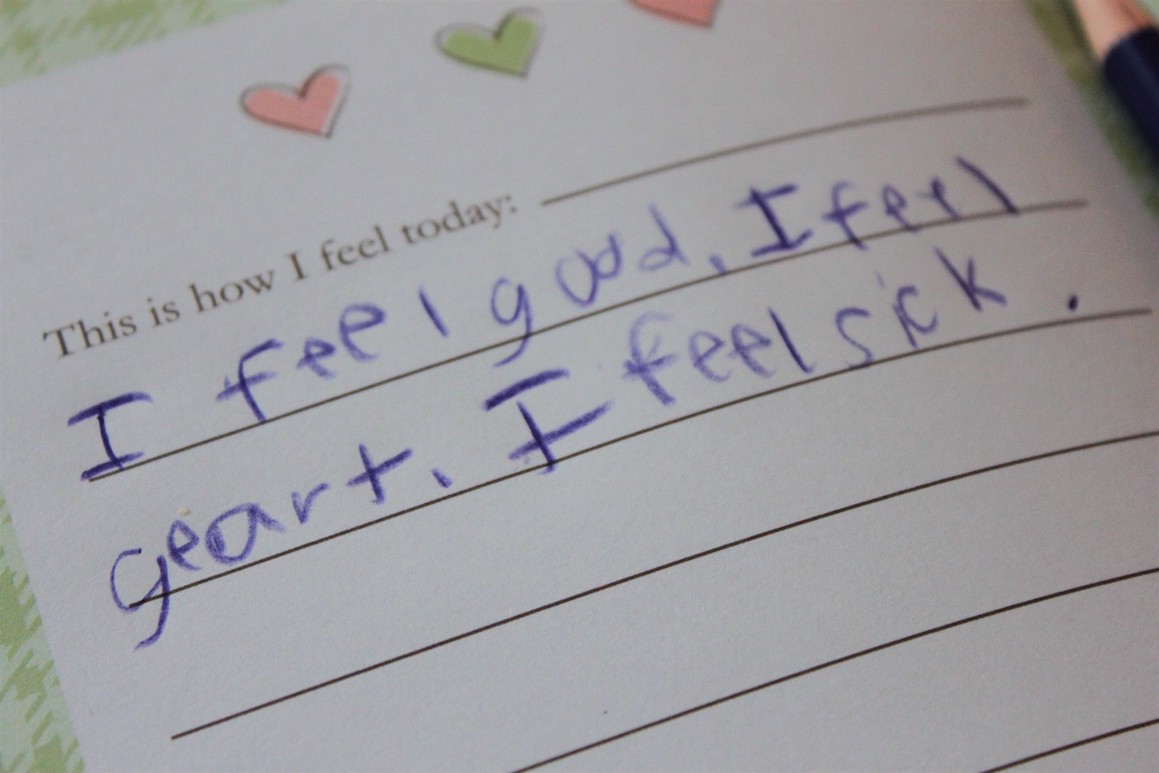 This is how I feel today:
I feel good. I feel
geart. I feel sick.